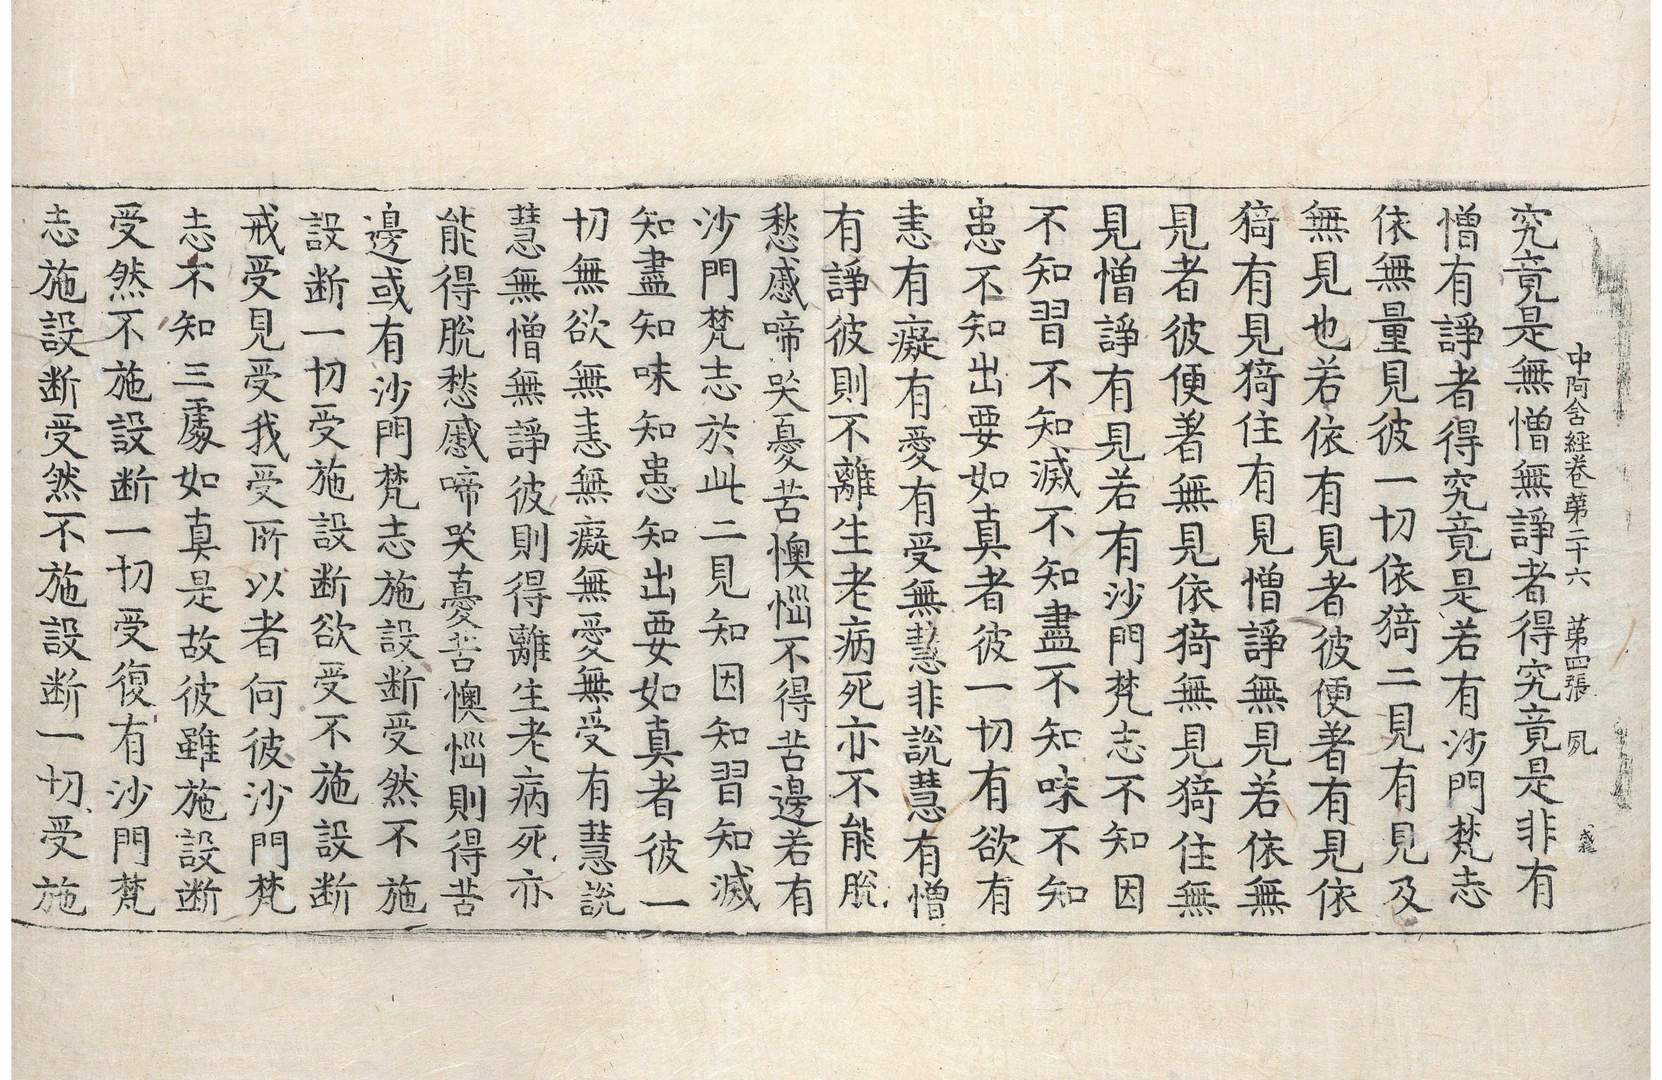 中阿含経卷苐二十六　苐四張　夙
究竟是無憎無諍者得究竟是非有
憎有諍者得究竟是若有沙門梵志
依無量見彼一切依猗二見有見及
無見也若依有見者彼便著有見依
猗有見猗住有見憎諍無見若依無
見者彼便著無見依猗無見猗住無
見憎諍有見若有沙門梵志不知因
不知習不知滅不知盡不知味不知
患不知出要如真者彼一切有欲有
恚有癡有愛有受無慧非說慧有憎
有諍彼則不離生老病死亦不能脫
愁慼啼哭憂苦懊惱不得苦邊若有
沙門梵志於此二見知因知習知滅
知盡知味知患知出要如真者彼一
切無欲無恚無癡無愛無受有慧說
慧無憎無諍彼則得離生老病死亦
能得脫愁慼啼哭憂苦懊惱則得苦
邊或有沙門梵志施設断受然不施
設断一切受施設断欲受不施設断
戒受見受我受所以者何彼沙門梵
志不知三處如真是故彼雖施設断
受然不施設断一切受復有沙門梵
志施設断受然不施設断一切受施